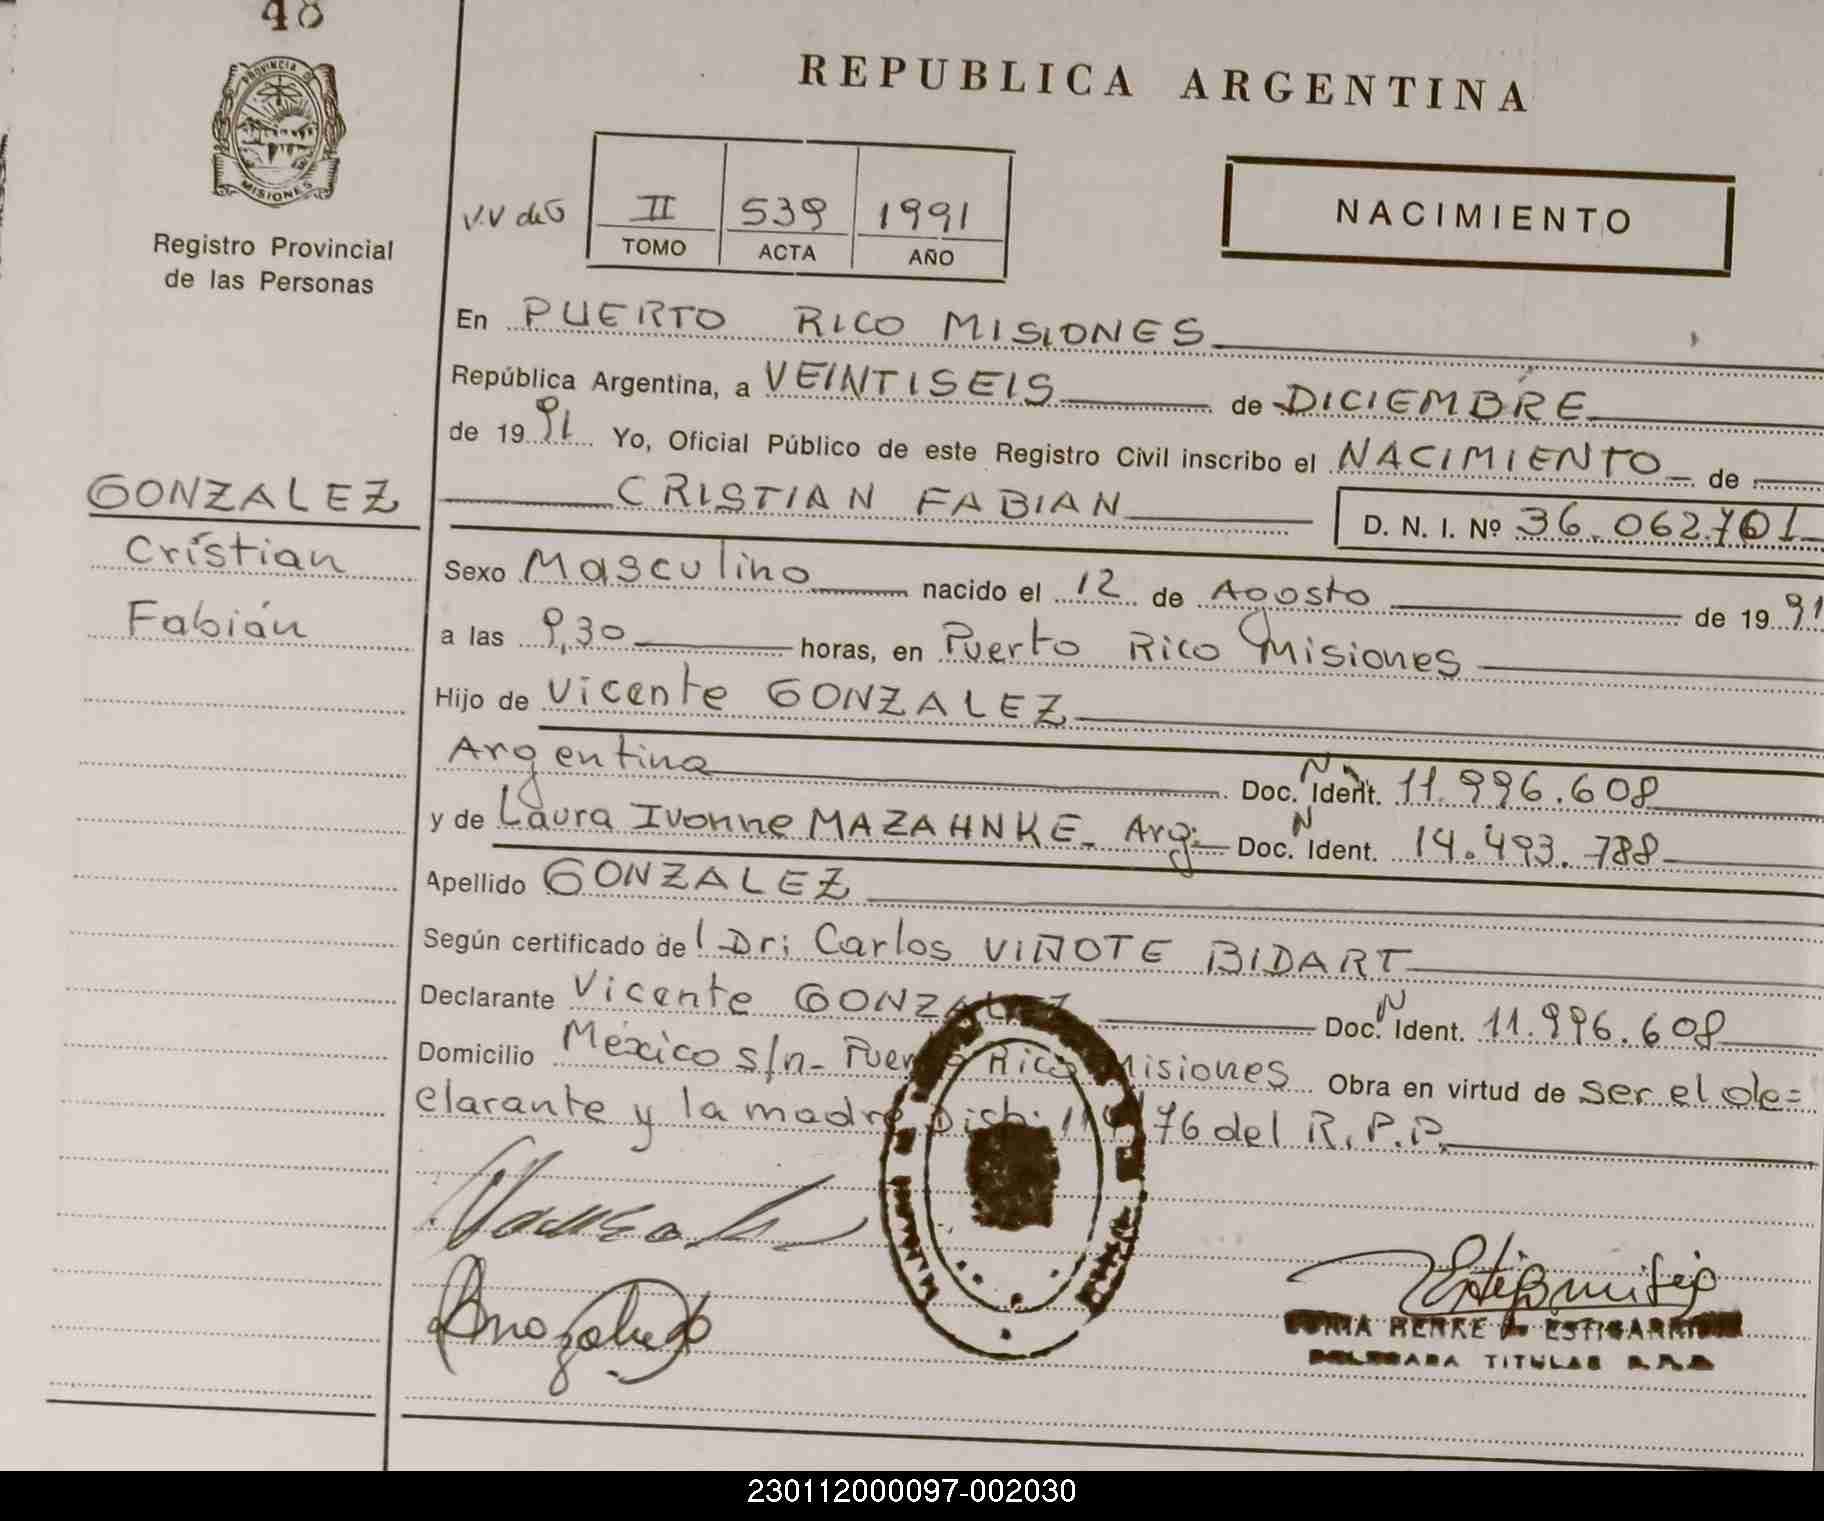 48
REPUBLICA ARGENTINA
PROVINCIA DE
MISIONES
Registro Provincial
de las Personas
V.V de G
II 539 1991
TOMO ACTA AÑO
NACIMIENTO
En PUERTO RICO MISIONES
República Argentina, a VEINTISEIS de DICIEMBRE
de 1991 Yo, Oficial Público de este Registro Civil inscribo el NACIMIENTO de
GONZALEZ
Cristian
Fabián
CRISTIAN FABIAN D. N. I. Nº 36.062.701
Sexo Masculino nacido el 12 de Agosto de 1991
a las 9,30 horas, en Puerto Rico Misiones
Hijo de Vicente GONZALEZ
Argentina Doc. N Ident. 11.996.608
y de Laura Ivonne MAZAHNKE - Arg. Doc. N Ident. 14.493.788
Apellido GONZALEZ
Según certificado del Dr; Carlos VIÑOTE BIDART
Declarante Vicente GONZALEZ Doc. N Ident. 11.996.608
Domicilio México s/n - Puerto Rico Misiones Obra en virtud de ser el de=
clarante y la madre Disp. 76 del R.P.P.
HENKE de ESTIGARRIBIA
DELEGADA TITULAR
230112000097-002030